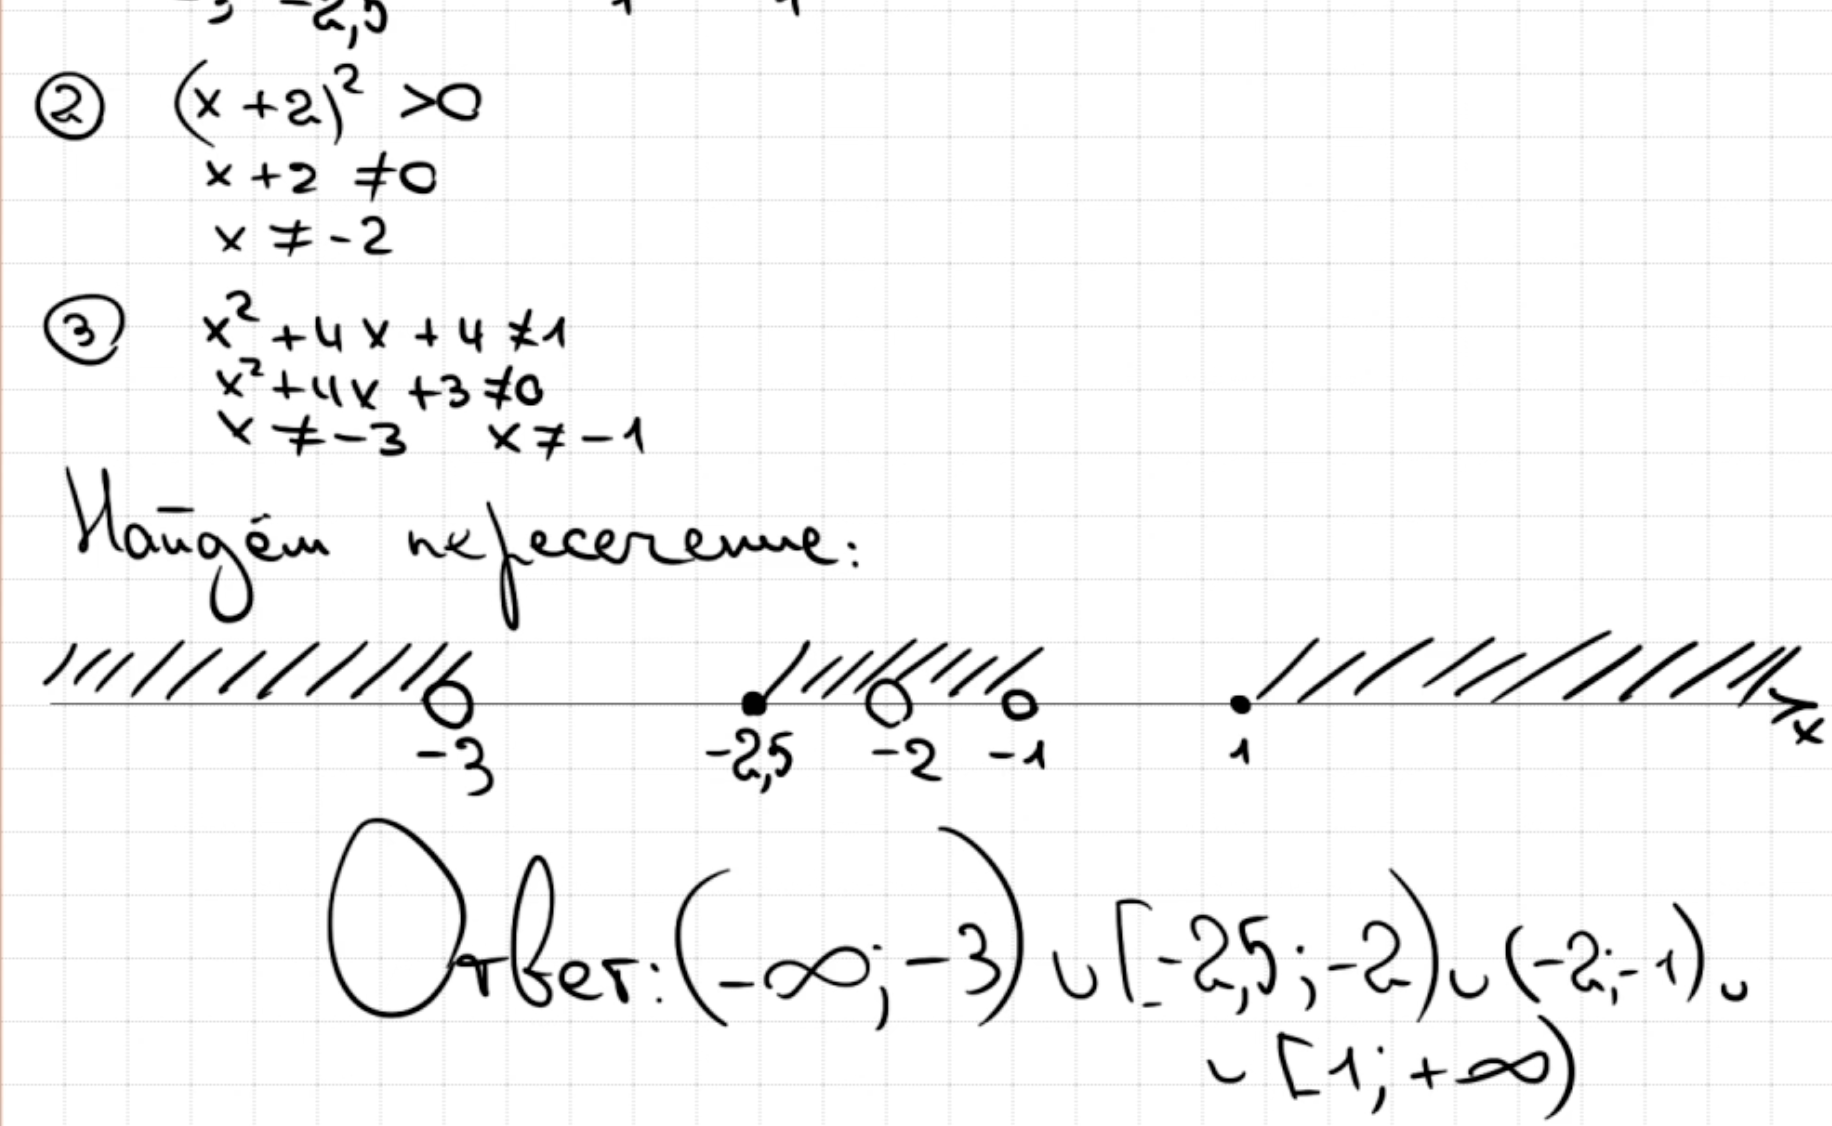 -2,5
② (x+2)² >0
x+2 ≠0
x ≠ -2
③ x²+4x+4 ≠1
x²+4x+3 ≠0
x ≠ -3 x ≠ -1
Найдём пересечение:
-3 -2,5 -2 -1 1 x
Ответ: (-∞; -3) ∪ [-2,5; -2) ∪ (-2; -1) ∪
∪ [1; +∞)